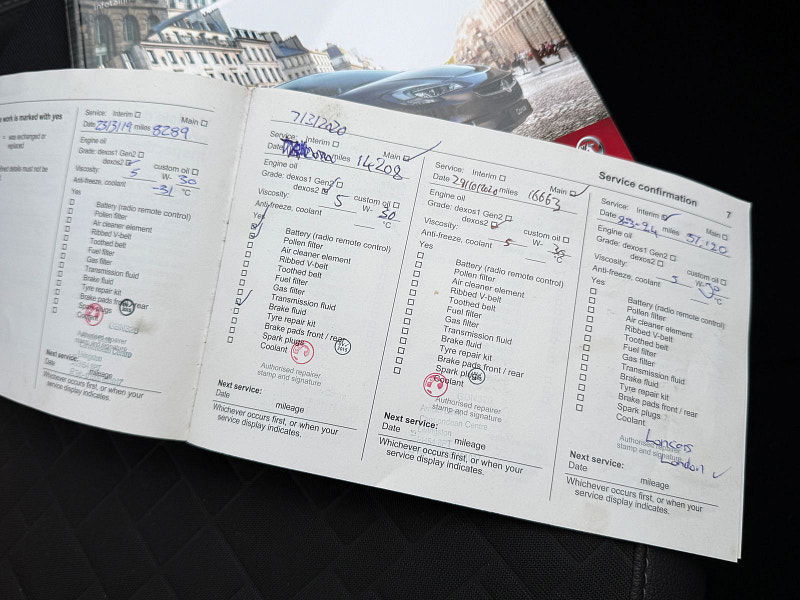 Infotainm
work is marked with yes
= was exchanged or
replaced
Service: Interim ☐ Main ☐
Date 23/3/19 miles 8289
Engine oil
Grade: dexos1 Gen2 ☐
dexos2 ☑ custom oil ☐
Viscosity: 5 W- 30
Anti-freeze, coolant -31 °C
Yes
☐ Battery (radio remote control)
☐ Pollen filter
☐ Air cleaner element
☐ Ribbed V-belt
☐ Toothed belt
☐ Fuel filter
☐ Gas filter
☐ Transmission fluid
☐ Brake fluid
☐ Tyre repair kit
☐ Brake pads front / rear
☐ Spark plugs
☐ Coolant
Authorised repairer
stamp and signature
Next service:
Date mileage
Whichever occurs first, or when your
service display indicates.
7/3/2020
Service: Interim ☐ Main ☑
Date miles 14208
Engine oil
Grade: dexos1 Gen2 ☐
dexos2 ☑ custom oil ☐
Viscosity: 5 W- 30
Anti-freeze, coolant °C
Yes
Battery (radio remote control)
Pollen filter
Air cleaner element
Ribbed V-belt
Toothed belt
Fuel filter
Gas filter
Transmission fluid
Brake fluid
Tyre repair kit
Brake pads front / rear
Spark plugs
Coolant
Authorised repairer
stamp and signature
Next service:
Date mileage
Whichever occurs first, or when your
service display indicates.
Service: Interim ☐ Main ☑
Date miles 16663
Engine oil
Grade: dexos1 Gen2 ☐
dexos2 ☑ custom oil ☐
Viscosity: 5 W- 30
Anti-freeze, coolant °C
Yes
☐ Battery (radio remote control)
☐ Pollen filter
☐ Air cleaner element
☐ Ribbed V-belt
☐ Toothed belt
☐ Fuel filter
☐ Gas filter
☐ Transmission fluid
☐ Brake fluid
☐ Tyre repair kit
☐ Brake pads front / rear
☐ Spark plugs
☐ Coolant
Authorised repairer
stamp and signature
Next service:
Date mileage
Whichever occurs first, or when your
service display indicates.
Service confirmation 7
Service: Interim ☑ Main ☐
Date 8-3-24 miles 57,120
Engine oil
Grade: dexos1 Gen2 ☐
dexos2 ☐ custom oil ☐
Viscosity: 5 W- 30
Anti-freeze, coolant °C
Yes
☐ Battery (radio remote control)
☐ Pollen filter
☐ Air cleaner element
☐ Ribbed V-belt
☐ Toothed belt
☐ Fuel filter
☐ Gas filter
☐ Transmission fluid
☐ Brake fluid
☐ Tyre repair kit
☐ Brake pads front / rear
☐ Spark plugs
☐ Coolant
Authorised repairer
stamp and signature
Lancers
London
Next service:
Date mileage
Whichever occurs first, or when your
service display indicates.